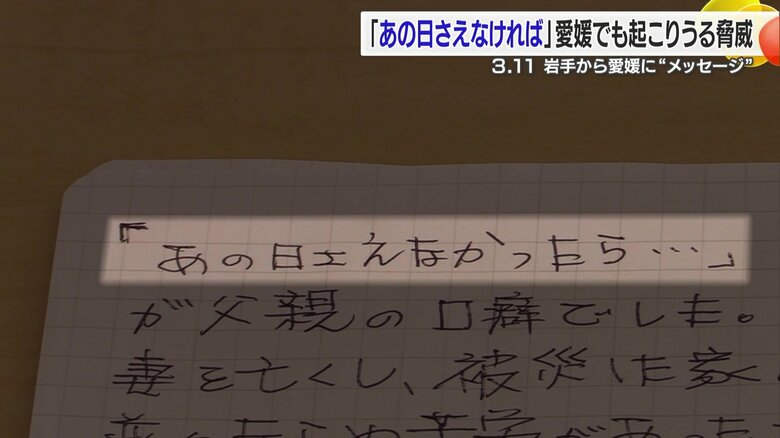 「あの日さえなければ」愛媛でも起こりうる脅威
3.11 岩手から愛媛に“メッセージ”
「あの日さえなかったら…」
が父親の口癖でした。
妻を亡くし、被災した家